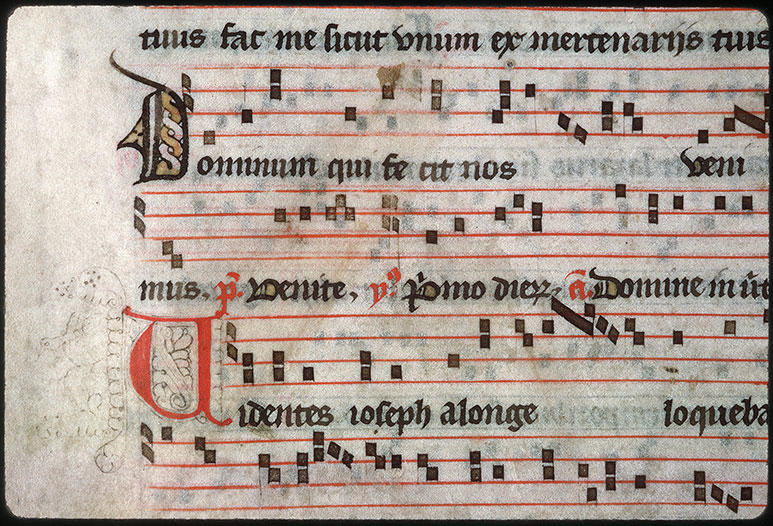 tuus fac me sicut vnum ex mercenarijs tuis
Dominum qui fecit nos veni
mus. p̄. Venite. ỹ. Primo dierꝝ. a̅. Domine in v̄t
Videntes ioseph alonge loqueba